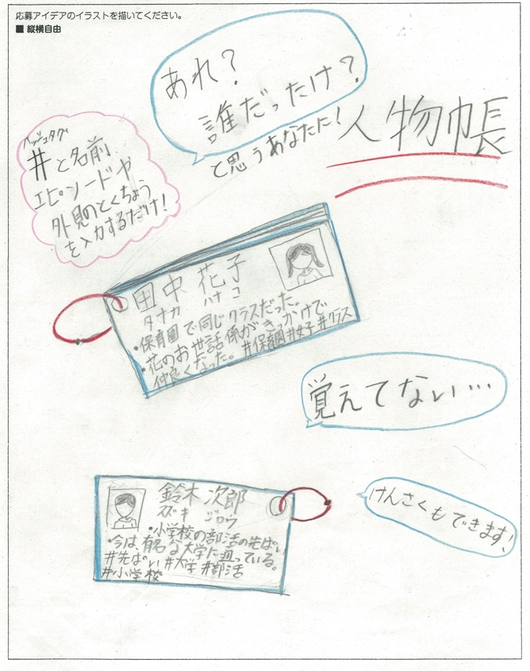 応募アイデアのイラストを描いてください。
■ 縦横自由
あれ?
誰だったけ?
と思うあなたに!
人物帳
ハッシュタグ
#と名前
エピソードや
外見のとくちょう
を入力するだけ!
田中 花子
タナカ ハナコ
・保育園で同じクラスだった
・花のお世話係がきっかけで
仲良くなった。#保育園#女子#クラス
覚えてない…
鈴木 次郎
スズキ ジロウ
・小学校の部活の先ぱい
・今は有名な大学に通っている。
#先ぱい #大学 #部活
#小学校
けんさくもできます!